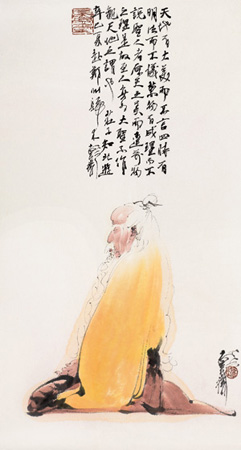 天地有大美而不言四時有
明法而不議萬物有成理而不
說聖人者原天地之美而達萬物
之理是故至人無為大聖不作
觀天地之謂也莊子知北遊
夏赴鄭州